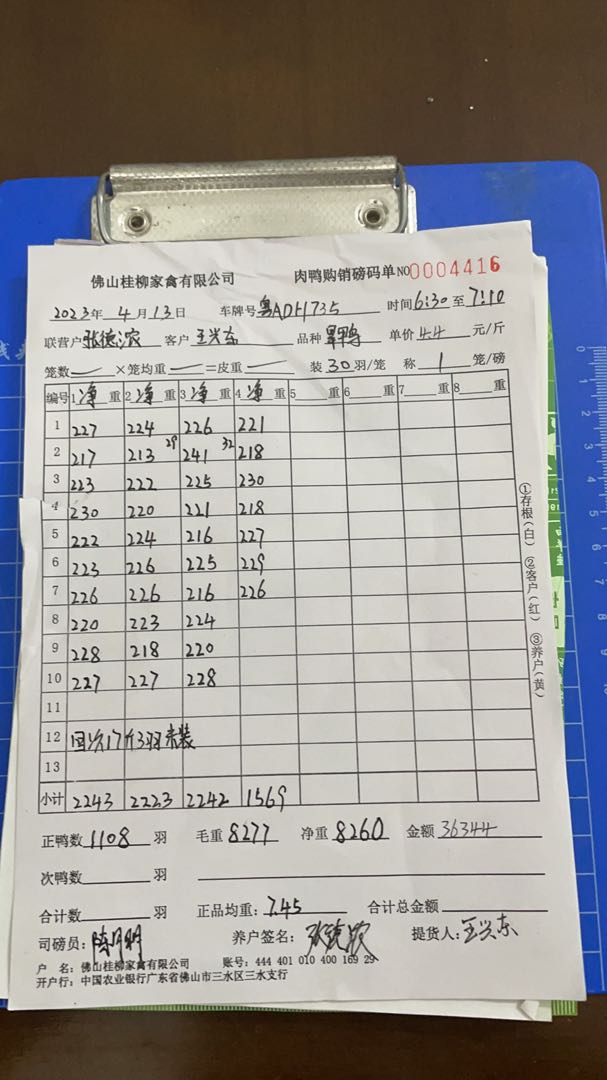 佛山桂柳家禽有限公司 肉鸭购销磅码单 NO 0004416
2023年 4月13日 车牌号 粤ADH735 时间 6:30 至 7:10
联营户 张德 客户 王兴东 品种 单价 4.4 元/斤
笼数 — ×笼均重 — =皮重 — 装 30 羽/笼 称 1 笼/磅
编号 1 净 重 2 净 重 3 净 重 4 净 重 5 重 6 重 7 重 8 重
1 227 224 226 221
2 217 213 29 241 32 218
3 223 222 225 230
4 230 220 221 218
5 222 224 216 227
6 223 226 225 229
7 226 226 216 226
8 220 223 224
9 228 218 220
10 227 227 228
11
12 回 17斤3羽未装
13
小计 2243 2223 2242 1569
正鸭数 1108 羽 毛重 8277 净重 8260 金额 36344
次鸭数 羽
合计数 羽 正品均重: 7.45 合计总金额
司磅员: 陈明 养户签名: 张德 提货人: 王兴东
户 名: 佛山桂柳家禽有限公司 账号: 444 401 010 400 169 29
开户行: 中国农业银行广东省佛山市三水区三水支行
①存根(白) ②客户(红) ③养户(黄)